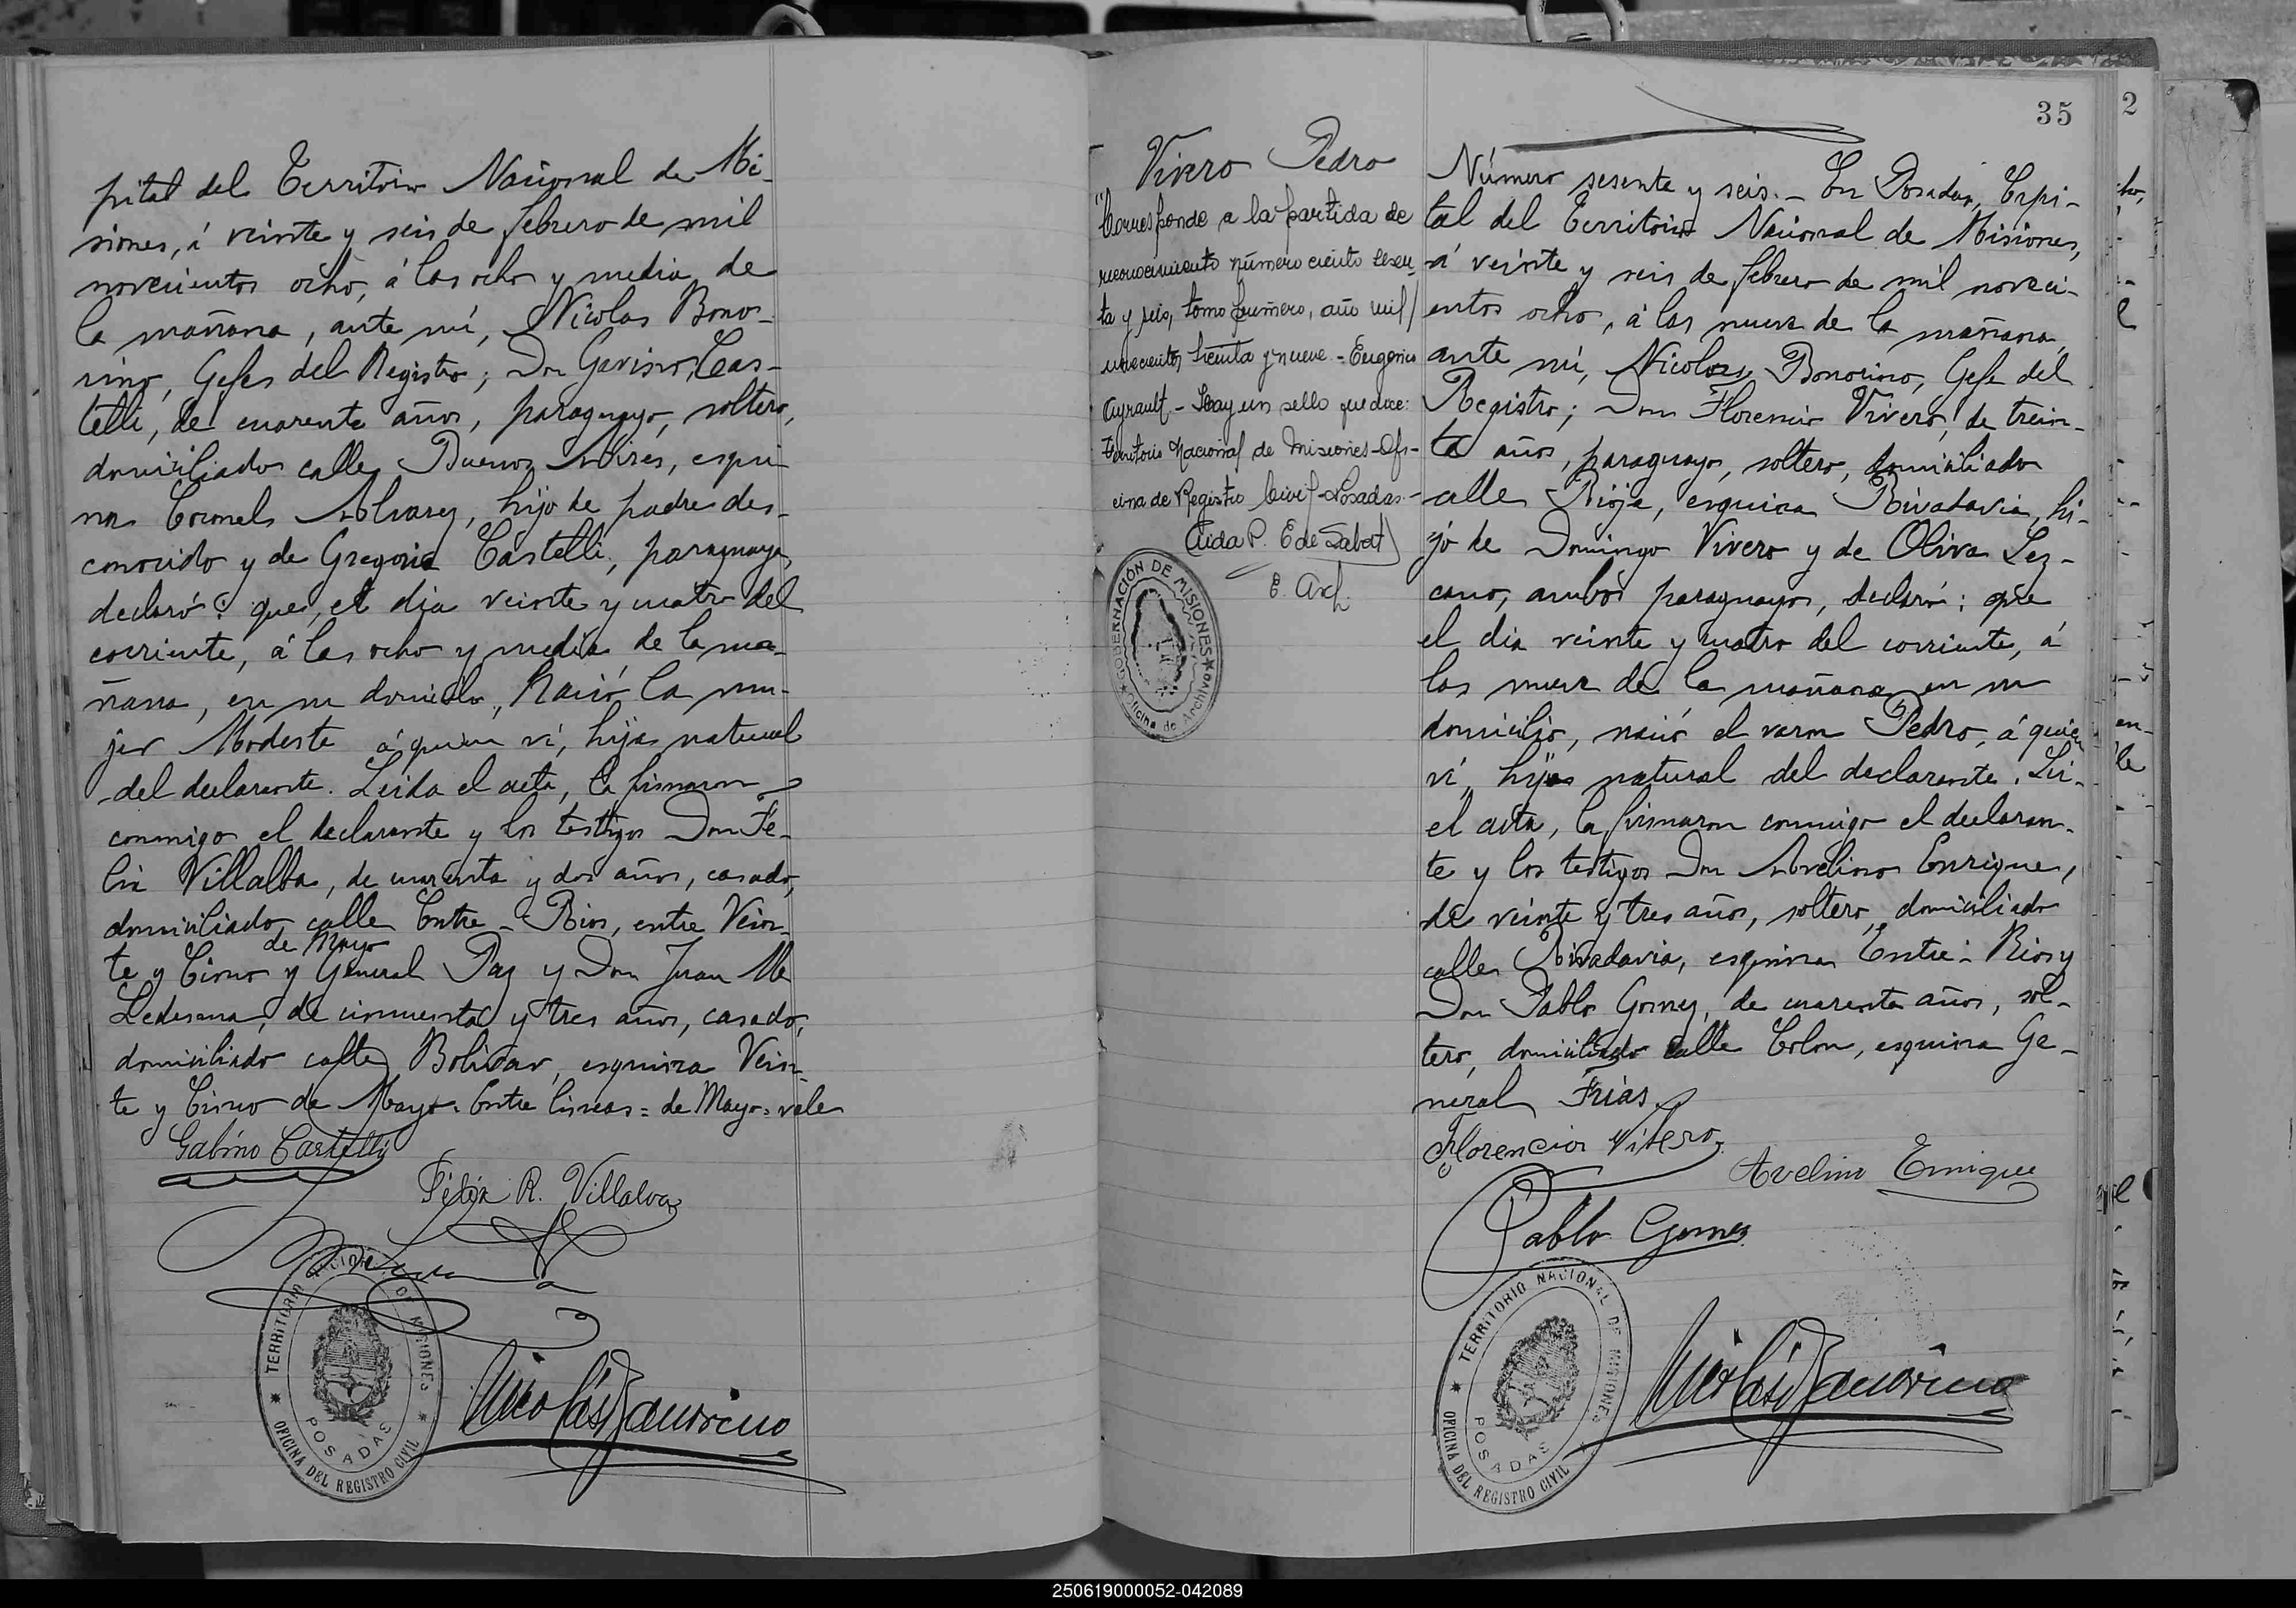 pital del Territorio Nacional de Mi-
siones, á veinte y seis de febrero de mil
novecientos ocho, á las ocho y media de
la mañana, ante mí, Nicolas Bono-
rino, Gefe del Registro; Don Gavino Cas-
telli, de cuarenta años, paraguayo, soltero,
domiciliado calle Buenos Aires, esqui-
na Coronel Alvarez, hijo de padre des-
conocido y de Gregoria Castelli, paraguaya,
declaró: que, el dia veinte y cuatro del
corriente, á las ocho y media de la ma-
ñana, en su domicilio, nació la mu-
jer Modesta á quien ví, hija natural
del declarante. Leida el acta, la firmaron
conmigo el declarante y los testigos Don Fe-
lix Villalba, de cuarenta y dos años, casado,
domiciliado calle Entre-Rios, entre Vein-
de Mayo
te y Cinco y General Paz y Don Juan M
Ledesma, de cincuenta y tres años, casado,
domiciliado calle Bolivar, esquina Vein-
te y Cinco de Mayo. Entre lineas = de Mayo = vale
Gabino Castelli
Félix R. Villalva
Ledesma
Nicolás Bonorino
TERRITORIO NACIONAL DE MISIONES
POSADAS
OFICINA DEL REGISTRO CIVIL
35
2
Vivero Pedro
"Corresponde a la partida de
reconocimiento número ciento sesen-
ta y seis, tomo primero, año mil
novecientos treinta y nueve. - Eugenio
Ayrault - Hay un sello que dice:
Territorio Nacional de Misiones - Ofi-
cina de Registro Civil - Posadas. -
Aida P. E de Sabat
E. Arch.
GOBERNACIÓN DE MISIONES
Oficina de Archivo
Número sesenta y seis. - En Posadas, Capi-
tal del Territorio Nacional de Misiones,
á veinte y seis de febrero de mil noveci-
entos ocho, á las nueve de la mañana,
ante mí, Nicolas Bonorino, Gefe del
Registro; Don Florencio Vivero, de trein-
ta años, paraguayo, soltero, domiciliado
calle Rioja, esquina Rivadavia, hi-
jo de Domingo Vivero y de Oliva Lez-
cano, ambos paraguayos, declaró: que
el dia veinte y cuatro del corriente, á
las nueve de la mañana en su
domicilio, nació el varon Pedro, á quien
ví, hijo natural del declarante. Lei-
el acta, la firmaron conmigo el declaran-
te y los testigos Don Avelino Enrique,
de veinte y tres años, soltero, domiciliado
calle Rivadavia, esquina Entre-Rios y
Don Pablo Gomez, de cuarenta años, sol-
tero, domiciliado calle Colon, esquina Ge-
neral Frias.
Florencio Vivero
Avelino Enrique
Pablo Gomez
TERRITORIO NACIONAL DE MISIONES
POSADAS
OFICINA DEL REGISTRO CIVIL
Nicolás Bonorino
250619000052-042089